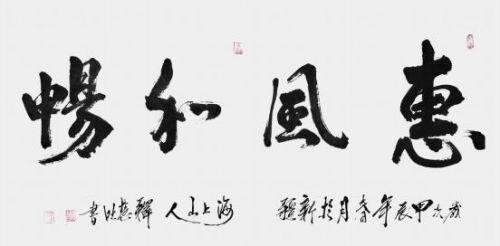 惠風和暢
歲次甲辰年春月於新疆 海上山人 釋 書